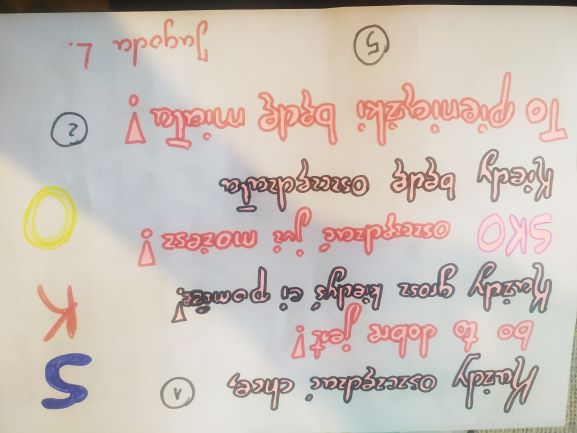 Każdy oszczędzać chce, 1
bo to jest!
Każdy grosz kiedyś ci pomoże!
SKO oszczędzać już możesz!
Kiedy będę oszczędzała
To pieniążki będę miała!
2
S
K
O
5
Jagoda